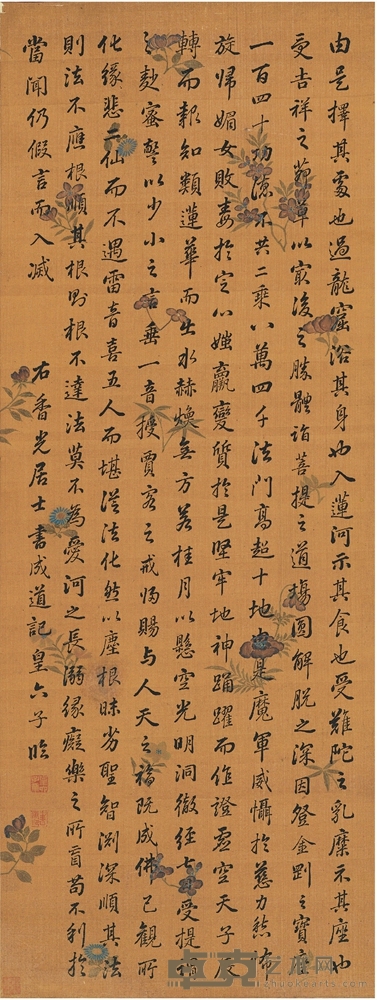 由是擇其處也過龍窟浴其身也入蓮河示其食也受難陀之乳糜示其座也
受吉祥之茆草以最後之勝體詣菩提之道場圓解脫之深因登金剛之寶座
一百四十功德不共二乘八萬四千法門高超十地由是魔軍威懾於慈力愁怖
旋歸媚女敗毒於定心媸羸變質於是堅牢地神踊躍而作證虛空天子展
轉而報知類蓮華而出水赫煥無方若桂月以懸空光明洞徹經七日受提謂
之麨蜜警以少小之言垂一音授賈客之戒歸賜與人天之福既成佛已觀所
化緣悲二仙而不遇雷音喜五人而堪從法化然以塵根昧劣聖智淵深順其法
則法不應根順其根則根不達法莫不為愛河之長溺緣癡樂之所盲苟不利於
當聞仍假言而入滅
右香光居士書成道記皇六子臨
卓克艺术网